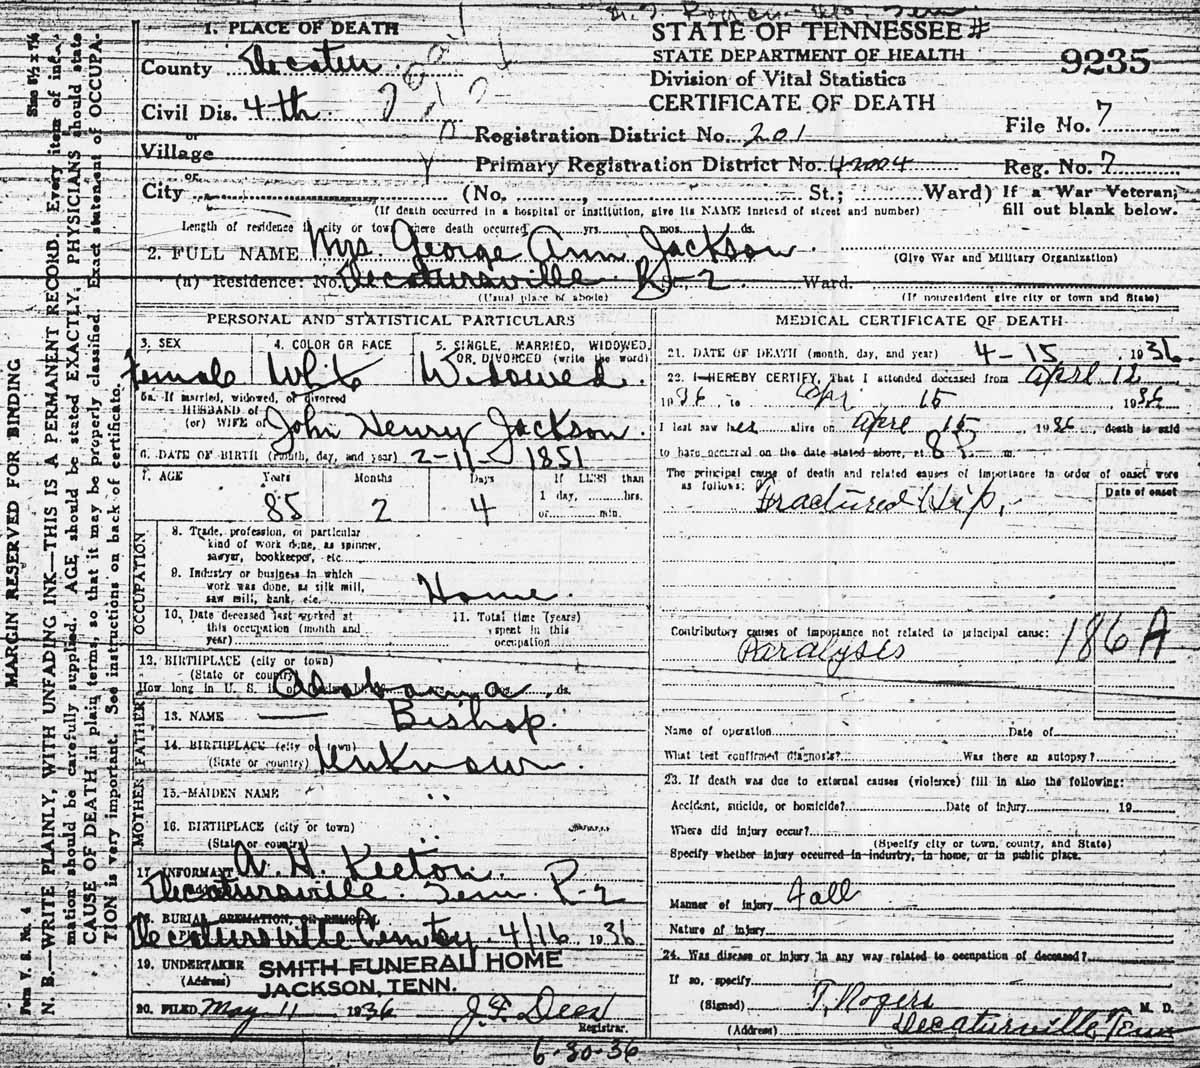 STATE OF TENNESSEE #
STATE DEPARTMENT OF HEALTH
Division of Vital Statistics
CERTIFICATE OF DEATH
9235
File No. 7
Registration District No. 201
Primary Registration District No. 42004
Reg. No. 7
1. PLACE OF DEATH
County Decatur
Civil Dis. 4th
or
Village
or
City (No. , St.; Ward)
(If death occurred in a hospital or institution, give its NAME instead of street and number)
If a War Veteran,
fill out blank below.
Length of residence in city or town where death occurred, yrs. mos. ds.
2. FULL NAME Mrs. George Ann Jackson
(Give War and Military Organization)
(a) Residence: No. Decatursville R St., 2 Ward.
(Usual place of abode)
(If nonresident give city or town and State)
PERSONAL AND STATISTICAL PARTICULARS
3. SEX
Female
4. COLOR OR RACE
White
5. SINGLE, MARRIED, WIDOWED,
OR DIVORCED (write the word)
Widowed
5a. If married, widowed, or divorced
HUSBAND of
(or) WIFE of John Henry Jackson
6. DATE OF BIRTH (month, day, and year) 2-11-1851
7. AGE Years Months Days If LESS than
1 day, hrs.
or min.
85 2 4
OCCUPATION
8. Trade, profession, or particular
kind of work done, as spinner,
sawyer, bookkeeper, etc.
9. Industry or business in which
work was done, as silk mill,
saw mill, bank, etc. Home
10. Date deceased last worked at
this occupation (month and
year)
11. Total time (years)
spent in this
occupation
12. BIRTHPLACE (city or town)
(State or country) Alabama
How long in U. S. if of ds.
FATHER
13. NAME — Bishop
14. BIRTHPLACE (city or town)
(State or country) Unknown
MOTHER
15. MAIDEN NAME "
16. BIRTHPLACE (city or town)
(State or country)
17. INFORMANT A. H. Keeton
(Address) Decatursville Tenn R-2
18. BURIAL, CREMATION, OR REMOVAL
Decatursville Cemetey 4/16, 1936
19. UNDERTAKER SMITH FUNERAL HOME
(Address) JACKSON, TENN.
20. FILED May 11 1936 J. F. Dees
Registrar.
6-30-36
MEDICAL CERTIFICATE OF DEATH
21. DATE OF DEATH (month, day, and year) 4-15, 1936
22. I HEREBY CERTIFY, That I attended deceased from April 12
1936 to Apr 15, 1936
I last saw her alive on April 15, 1936, death is said
to have occurred on the date stated above, at 8 P. m.
The principal cause of death and related causes of importance in order of onset were
as follows:
Date of onset
Fractured Hip,
Contributory causes of importance not related to principal cause: 186 A
Paralysis
Name of operation Date of
What test confirmed diagnosis? Was there an autopsy?
23. If death was due to external causes (violence) fill in also the following:
Accident, suicide, or homicide? Date of injury 19
Where did injury occur?
(Specify city or town, county, and State)
Specify whether injury occurred in industry, in home, or in public place.
Manner of injury Fall
Nature of injury
24. Was disease or injury in any way related to occupation of deceased?
If so, specify
(Signed) T. Rogers M. D.
(Address) Decaturville, Tenn
MARGIN RESERVED FOR BINDING
Form V. S. No. 4
Size 8½ x 7⅜
N. B.—WRITE PLAINLY, WITH UNFADING INK—THIS IS A PERMANENT RECORD. Every item of infor-
mation should be carefully supplied. AGE should be stated EXACTLY. PHYSICIANS should state
CAUSE OF DEATH in plain terms, so that it may be properly classified. Exact statement of OCCUPA-
TION is very important. See instructions on back of certificate.